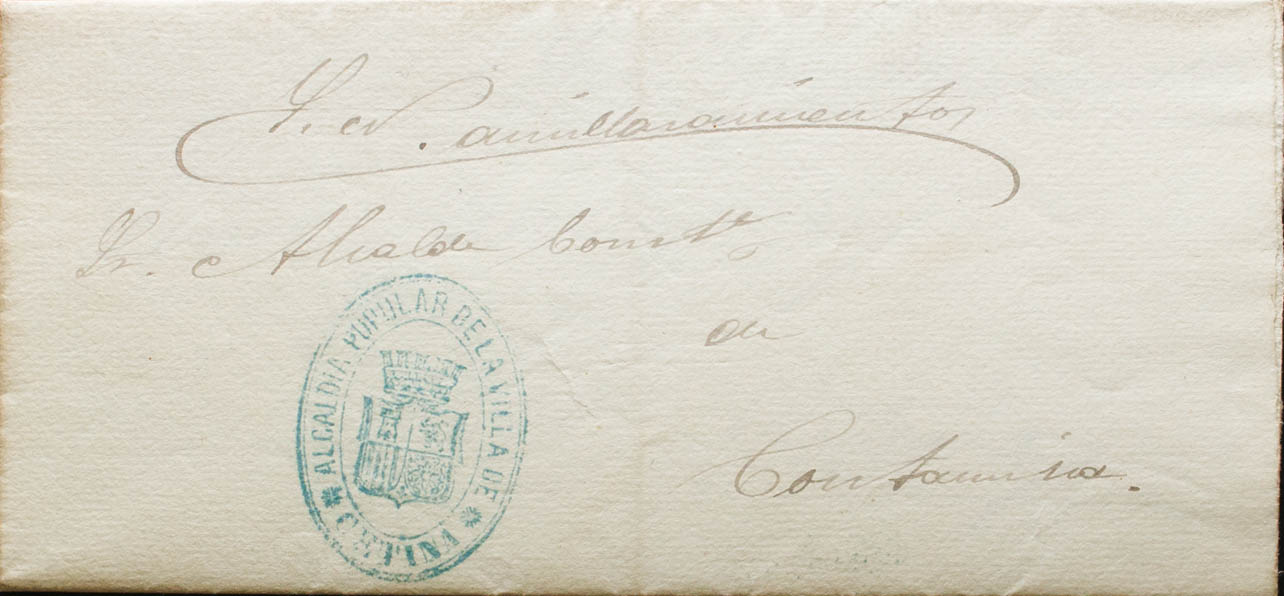 S. N. amillaramientos
Sr. Alcalde Const.
de
Contamina.
ALCALDIA POPULAR DE LA VILLA DE
CETINA